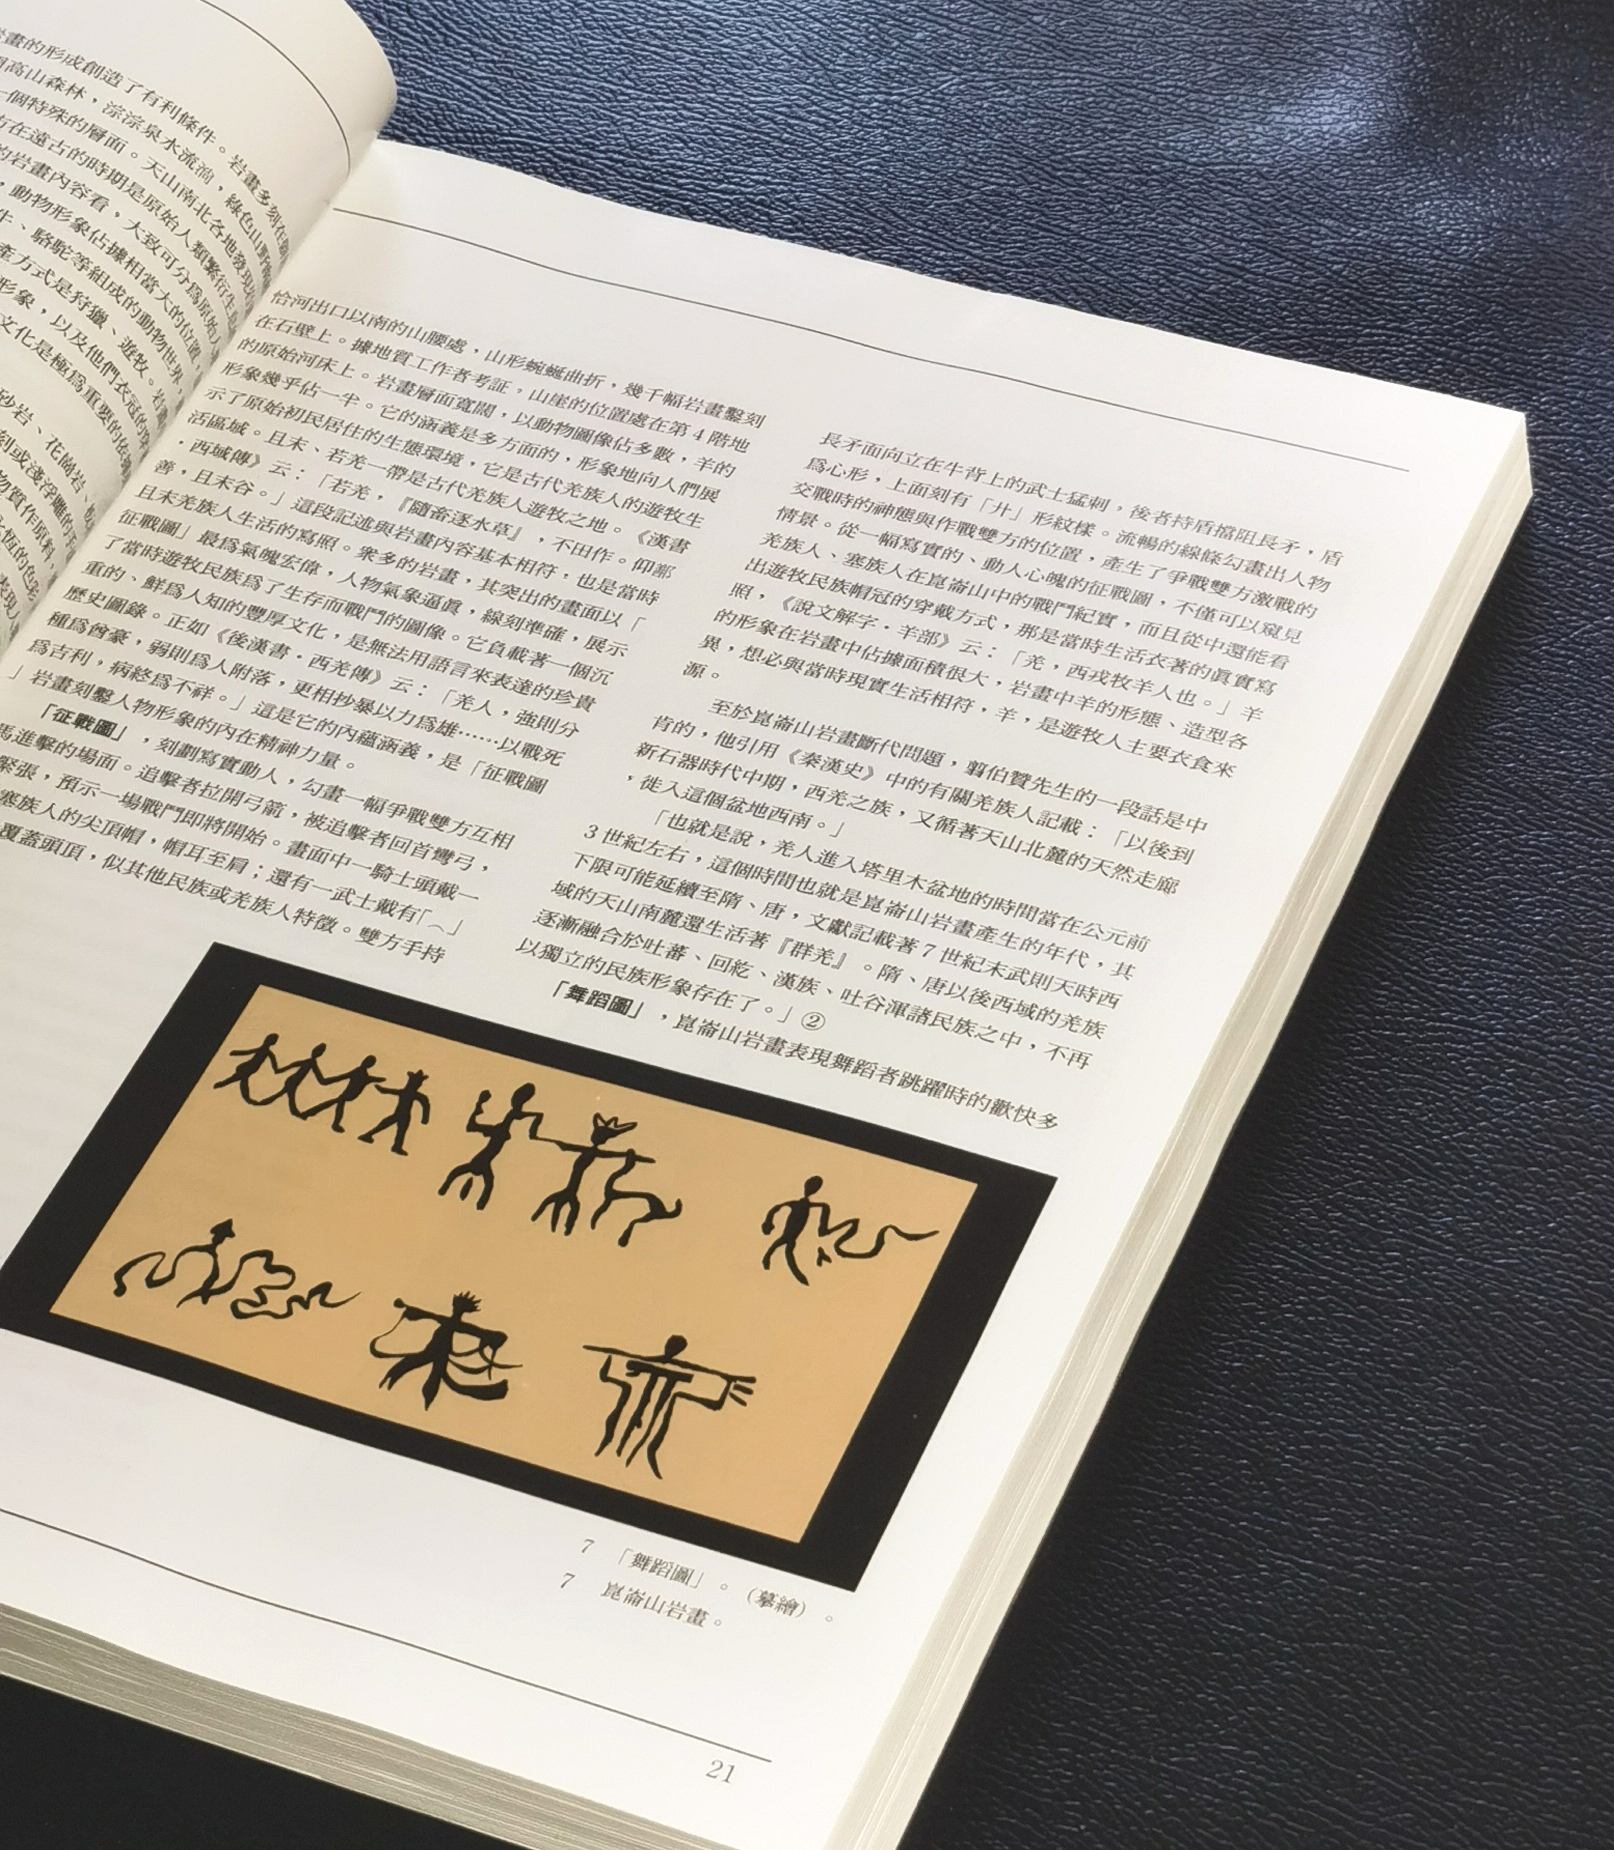 畫的形成創造了有利條件。岩畫多刻在
高山森林，淙淙泉水流淌，綠色山野
一個特殊的層面。天山南北各地發現
在遠古的時期是原始人類繁衍生息
的岩畫內容看，大致可分爲原始人
，動物形象佔據相當大的位置，
牛、駱駝等組成的動物世界，
產方式是狩獵、遊牧。岩
形象，以及他們衣冠的穿
文化是極爲重要的依據
砂岩、花崗岩、
刻或淺浮雕的手
物質作原料，
恆的色彩
表現人
恰河出口以南的山腰處，山形蜿蜒曲折，幾千幅岩畫鑿刻
在石壁上。據地質工作者考証，山崖的位置處在第 4 階地
的原始河床上。岩畫層面寬闊，以動物圖像佔多數，羊的
形象幾乎佔一半。它的涵義是多方面的，形象地向人們展
示了原始初民居住的生態環境，它是古代羌族人的遊牧生
活區域。且末、若羌一帶是古代羌族人遊牧之地。《漢書
．西域傳》云：「若羌，『隨畜逐水草』，不田作。仰鄯
善，且末谷。」這段記述與岩畫內容基本相符，也是當時
且末羌族人生活的寫照。衆多的岩畫，其突出的畫面以「
征戰圖」最爲氣魄宏偉，人物氣象逼眞，線刻準確，展示
了當時遊牧民族爲了生存而戰鬥的圖像。它負載著一個沉
重的、鮮爲人知的豐厚文化，是無法用語言來表達的珍貴
歷史圖錄。正如《後漢書．西羌傳》云：「羌人，強則分
種爲酋豪，弱則爲人附落，更相抄暴以力爲雄……以戰死
爲吉利，病終爲不祥。」這是它的內蘊涵義，是「征戰圖
」岩畫刻鑿人物形象的內在精神力量。
「征戰圖」，刻劃寫實動人，勾畫一幅爭戰雙方互相
馬進擊的場面。追擊者拉開弓箭，被追擊者回首彎弓，
緊張，預示一場戰鬥即將開始。畫面中一騎士頭戴一
塞族人的尖頂帽，帽耳至肩；還有一武士戴有「︿」
覆蓋頭頂，似其他民族或羌族人特徵。雙方手持
長矛面向立在牛背上的武士猛刺，後者持盾擋阻長矛，盾
爲心形，上面刻有「廾」形紋樣。流暢的線條勾畫出人物
交戰時的神態與作戰雙方的位置，產生了爭戰雙方激戰的
情景。從一幅寫實的、動人心魄的征戰圖，不僅可以窺見
羌族人、塞族人在崑崙山中的戰鬥紀實，而且從中還能看
出遊牧民族帽冠的穿戴方式，那是當時生活衣著的眞實寫
照，《說文解字．羊部》云：「羌，西戎牧羊人也。」羊
的形象在岩畫中佔據面積很大，岩畫中羊的形態、造型各
異，想必與當時現實生活相符，羊，是遊牧人主要衣食來
源。
至於崑崙山岩畫斷代問題，翦伯贊先生的一段話是中
肯的，他引用《秦漢史》中的有關羌族人記載：「以後到
新石器時代中期，西羌之族，又循著天山北麓的天然走廊
，徙入這個盆地西南。」
「也就是說，羌人進入塔里木盆地的時間當在公元前
3 世紀左右，這個時間也就是崑崙山岩畫產生的年代，其
下限可能延續至隋、唐，文獻記載著 7 世紀末武則天時西
域的天山南麓還生活著『群羌』。隋、唐以後西域的羌族
逐漸融合於吐蕃、回紇、漢族、吐谷渾諸民族之中，不再
以獨立的民族形象存在了。」②
「舞蹈圖」，崑崙山岩畫表現舞蹈者跳躍時的歡快多
7 「舞蹈圖」。（摹繪）。
7 崑崙山岩畫。
21